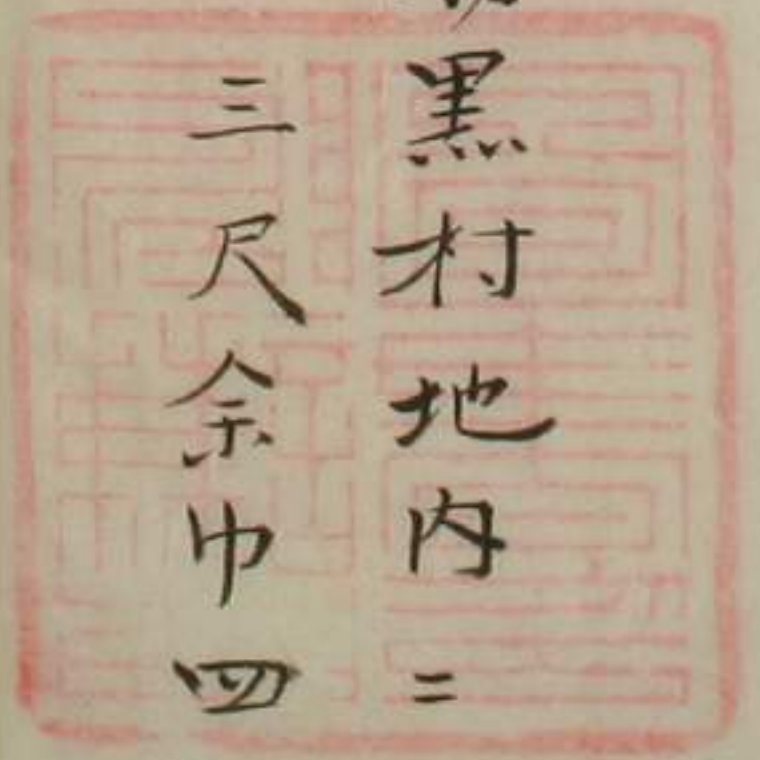 黒村地内ニ
三尺余巾四